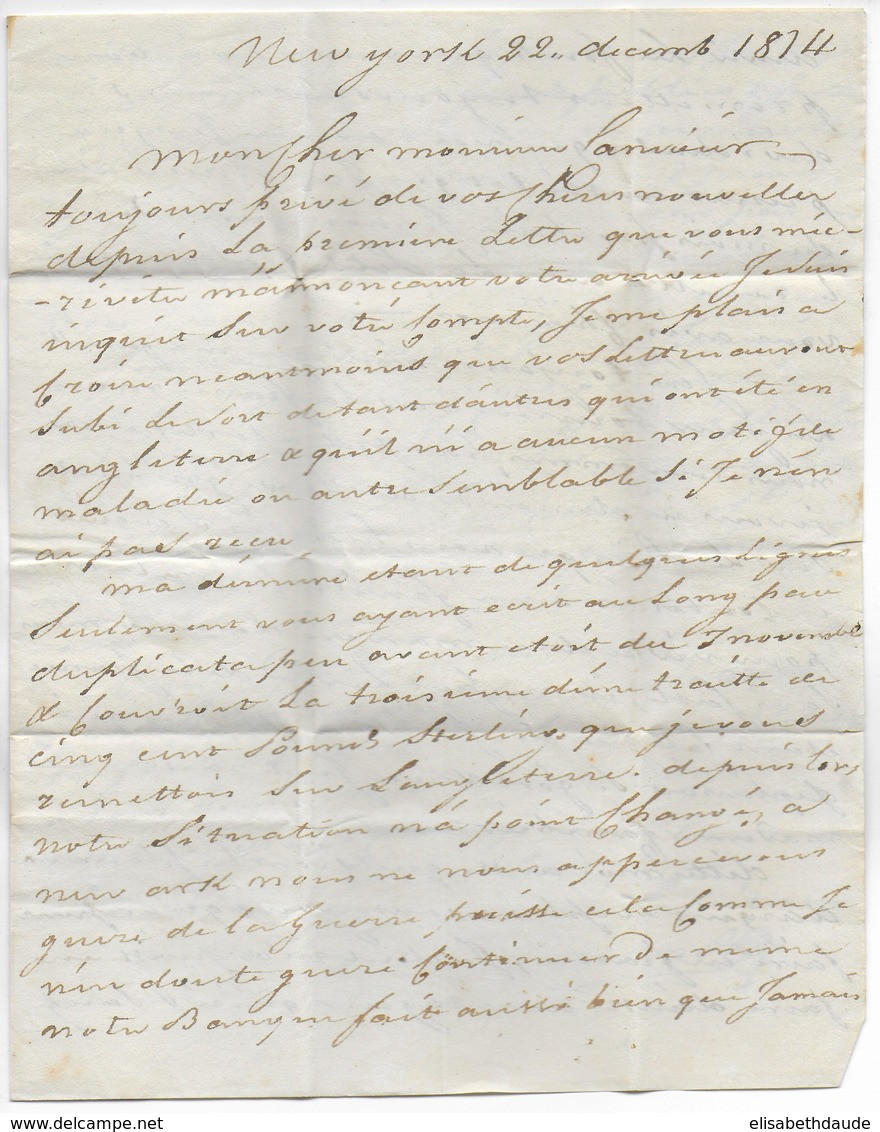 New york 22,, decemb 1814
mon Cher monsieur Lanuier
toujours privé de vos Chers nouvelles
depuis La premiere Lettre que vous m'éc-
-rivites m'annoncant votre arivée Je suis
inquiet Sur votre Compte, Je me plais a
Croire neantmoins que vos Lettres auront
Subi Le Sort de tant d'autres qui ont été en
angleterre & qu'il n'i a aucun motif de
maladie ou autre Semblable Si Je n'en
ai pas recu
ma derniere etant de quelques Lignes
Seulement vous ayant ecrit au Long par
duplicata peu avant etoit du 7 novembre
& Couvroit La troisieme d'une traitte de
cinq cent Pounds Sterling. que je vous
remettois Sur L'angleterre. depuis lors
notre Situation n'a point Changé, a
new ark nous ne nous appercevons
guere de la Guerre puisse cela Comme Je
n'en doute guere Continuer de meme
notre Banque fait aussi bien que Jamais
elisabethdaude